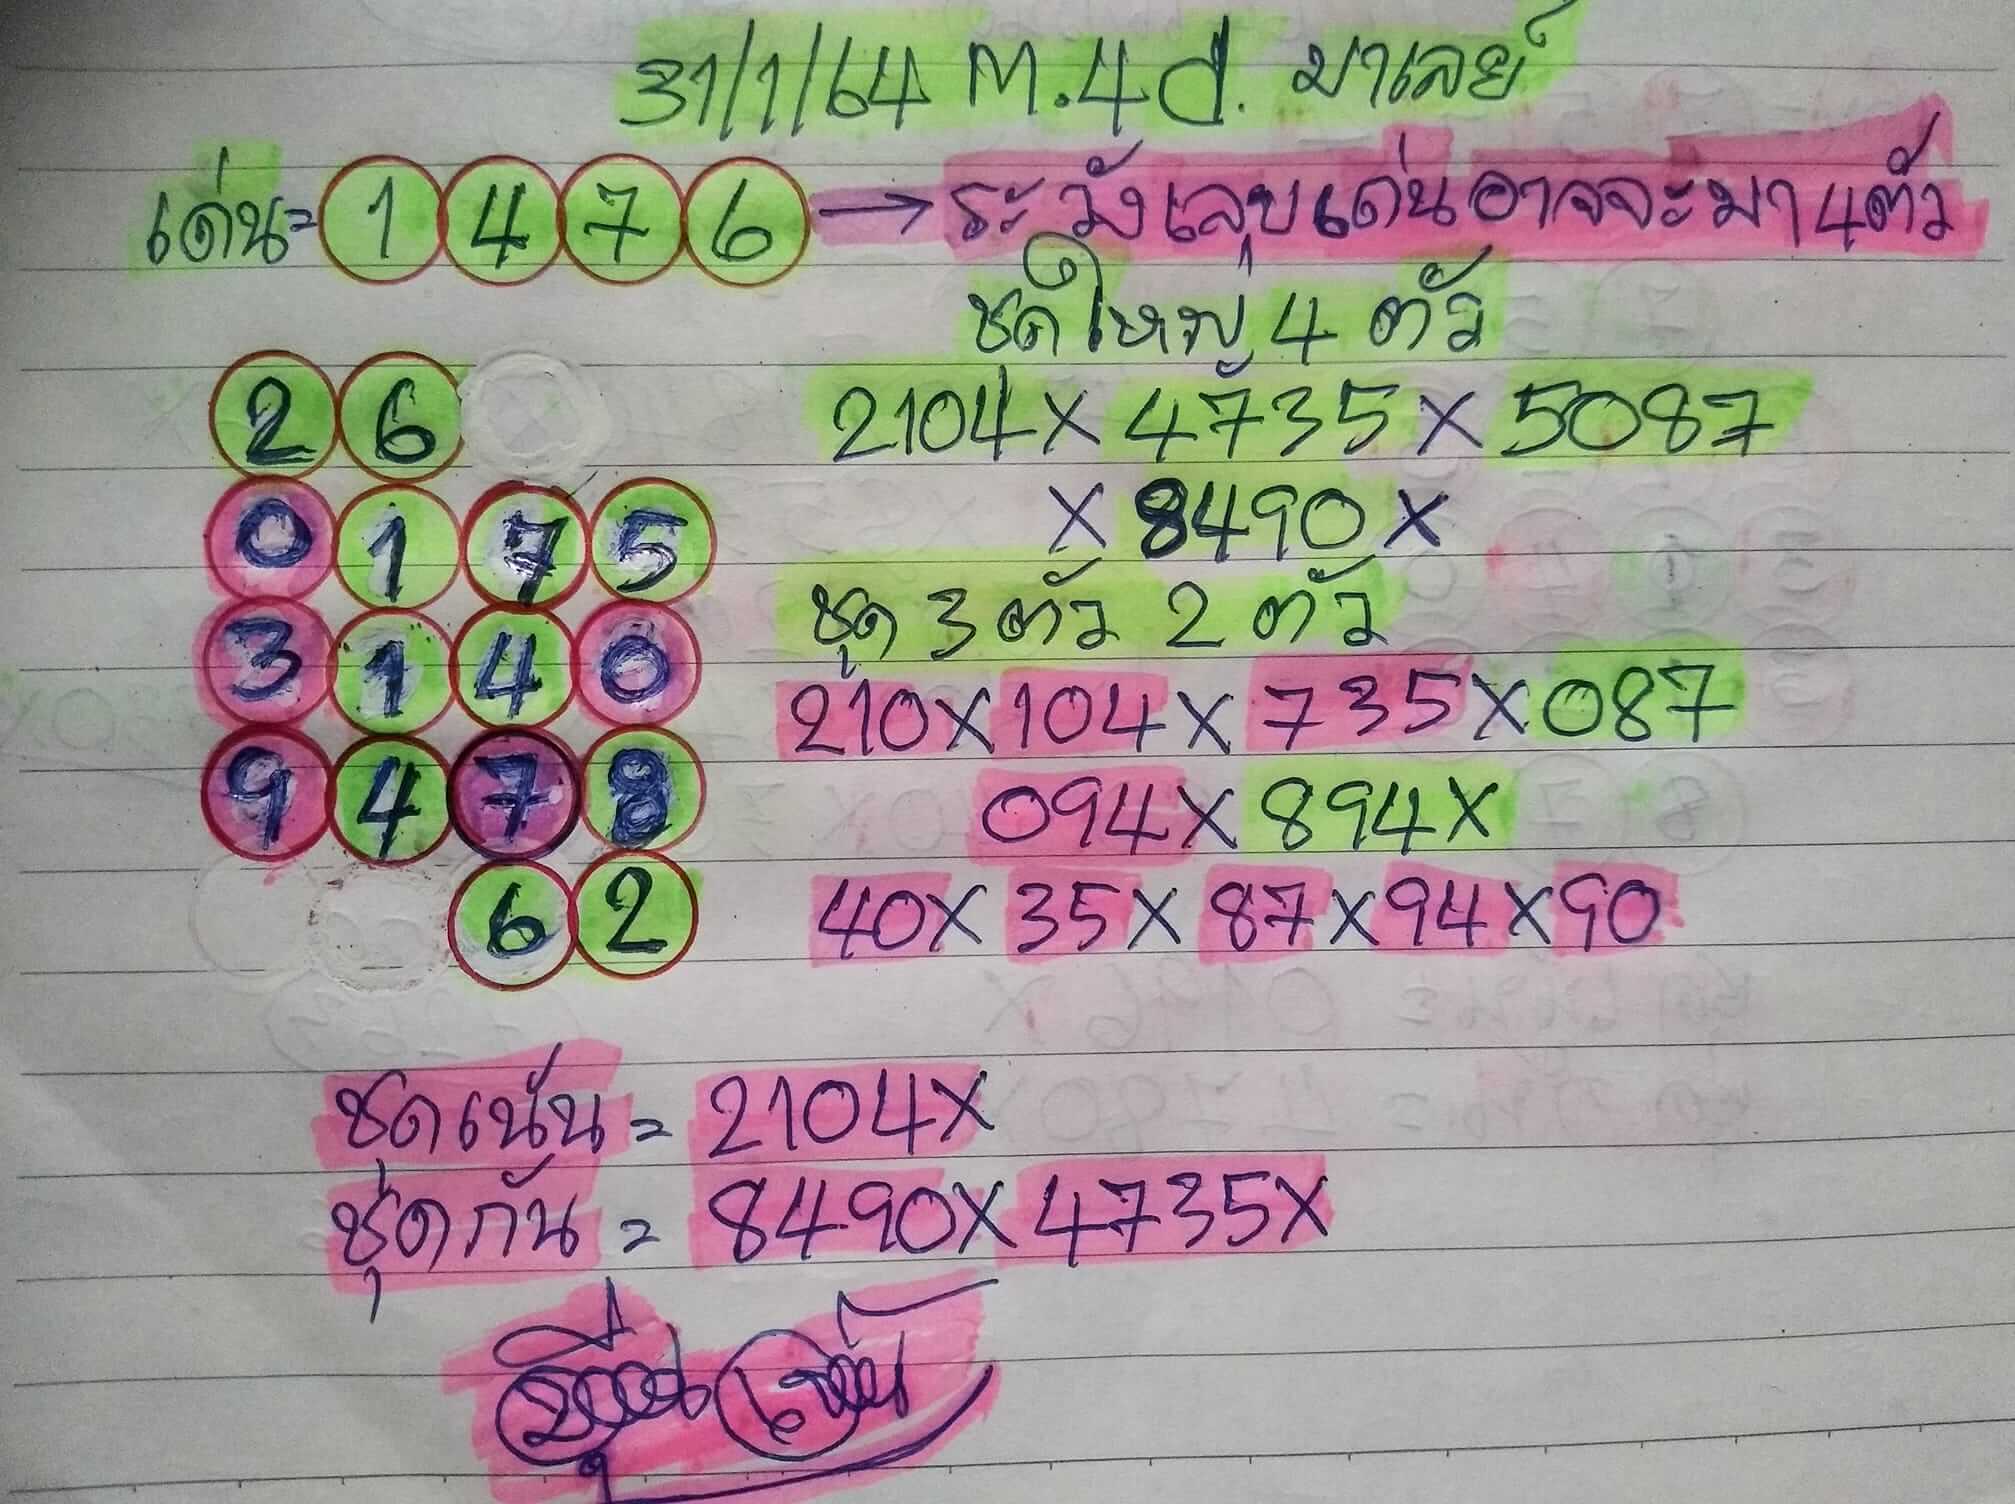 31/1/64 M.4d. มาเลย์
เด่น= 1 4 7 6 → ระวังเลขเด่นอาจจะมา 4ตัว
ชุดใหญ่ 4 ตัว
2 6
2104X 4735X 5087
0 1 7 5
X 8490 X
ชุด 3 ตัว 2 ตัว
3 1 4 0
210X 104X 735X 087
9 4 7 8
094X 894X
6 2
40X 35X 87X 94X 90
ชุดเน้น = 2104X
ชุดกัน = 8490X 4735X